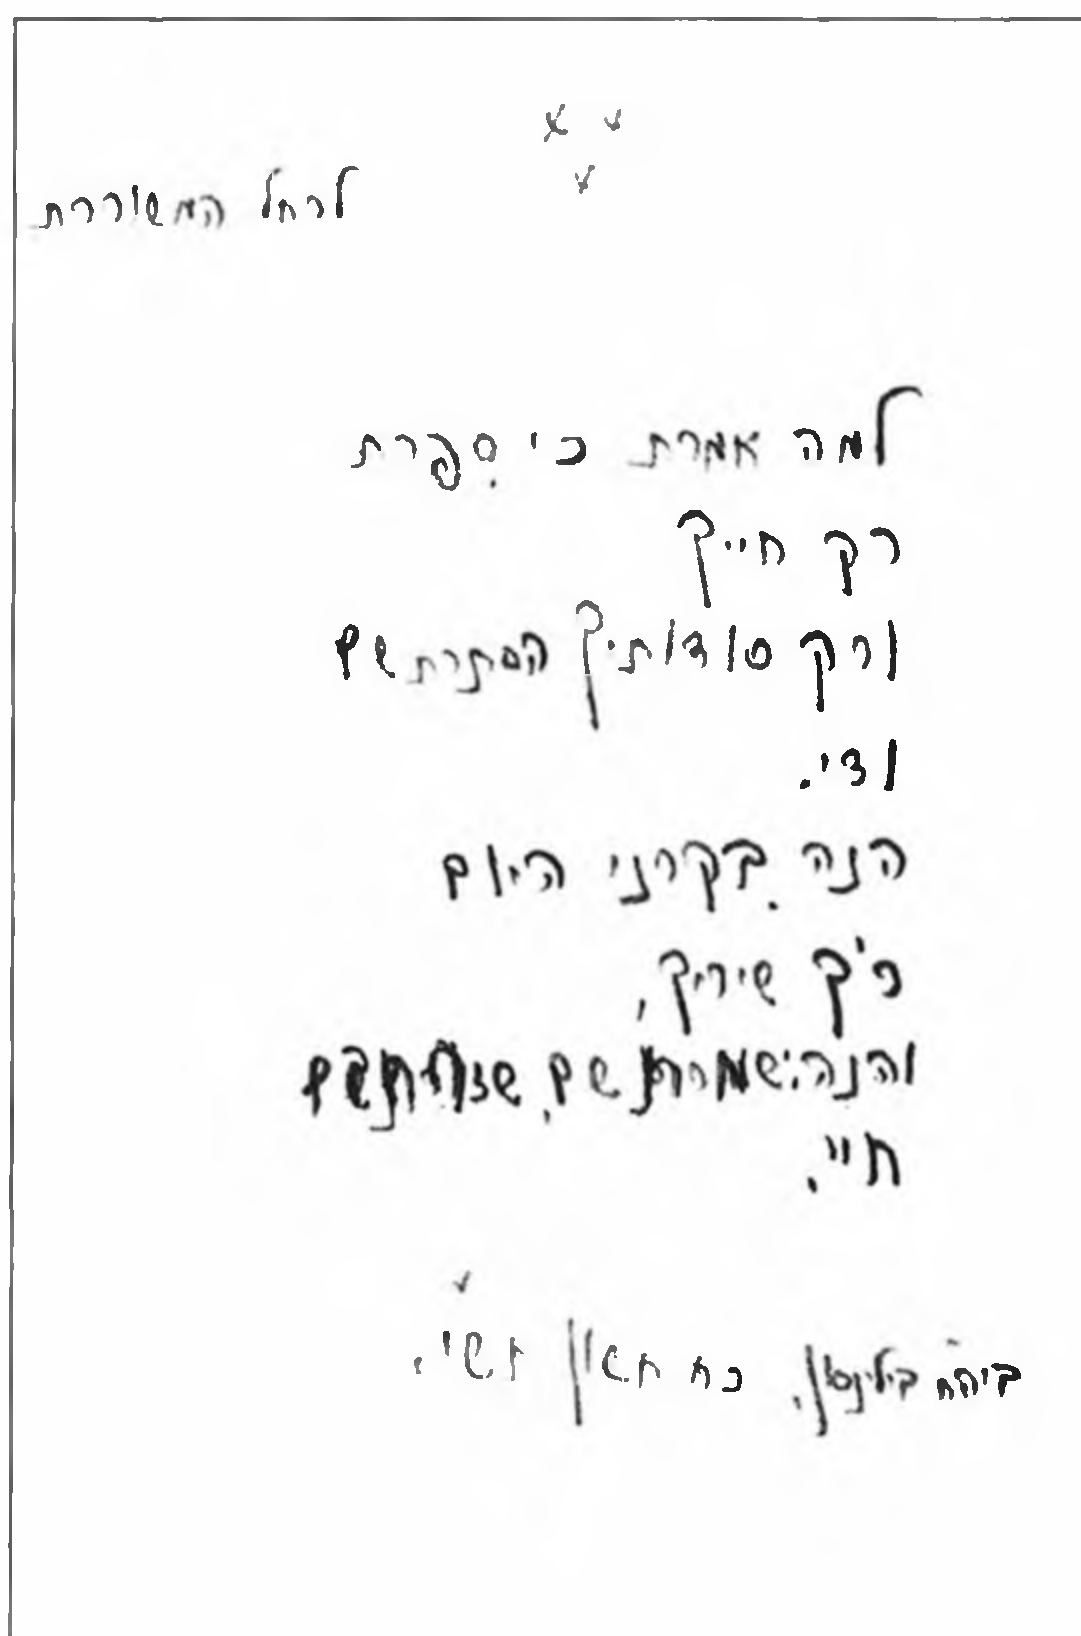 לרחל המשוררת
למה אמרת כי ספרת
רק חייך
ורק סודותיך הסתרת שם
ודי.
הנה בקרני היום
רק שיריך,
והנה שמרת שם,
חיי.
ביה״ח בילינסון, כח חשון תשי.